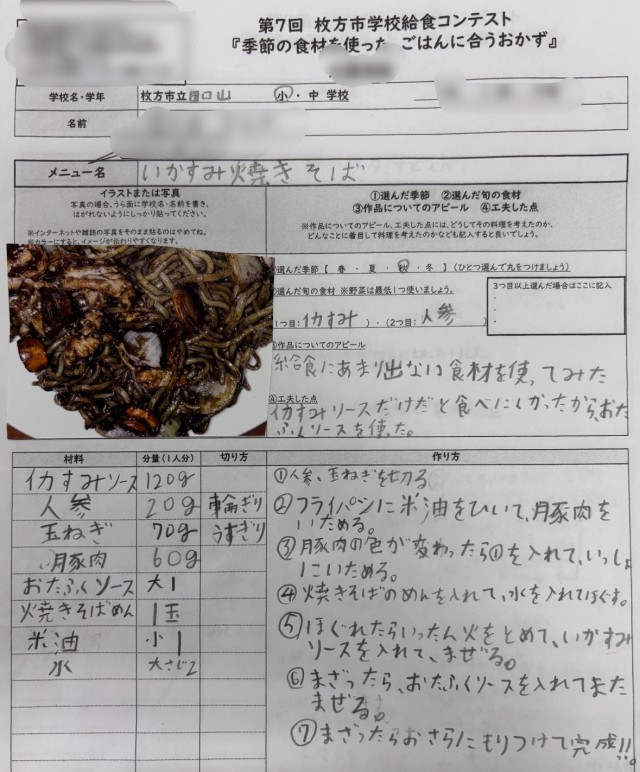 第7回 枚方市学校給食コンテスト
『季節の食材を使った ごはんに合うおかず』
学校名・学年 枚方市立田口山 小・中 学校
名前
メニュー名 いかすみ焼きそば
イラストまたは写真
写真の場合、うら面に学校名・名前を書き、
はがれないようにしっかり貼ってください。
※インターネットや雑誌の写真をそのまま貼るのはやめてね。
※カラーにすると、イメージが伝わりやすくなります。
①選んだ季節 ②選んだ旬の食材
③作品についてのアピール ④工夫した点
※作品についてのアピール、工夫した点には、どうしてその料理を考えたのか、
どんなことに着目して料理を考えたのかなども記入すると良いでしょう。
①選んだ季節【 春・夏・秋・冬 】(ひとつ選んで丸をつけましょう)
②選んだ旬の食材 ※野菜は最低1つ使いましょう。
(1つ目:イカすみ )・(2つ目: 人参 )
3つ目以上選んだ場合はここに記入
・
・
・
③作品についてのアピール
給食にあまり出ない食材を使ってみた
④工夫した点
イカすみソースだけだと食べにくかったから、おた
ふくソースを使った。
材料 分量(1人分) 切り方 作り方
イカすみソース 120g
人参 20g 輪ぎり
玉ねぎ 70g うすぎり
豚肉 60g
おたふくソース 大1
火焼きそばめん 1玉
米油 小1
水 大さじ2
①人参、玉ねぎを切る
②フライパンに米油をひいて、豚肉を
いためる。
③豚肉の色が変わったら①を入れて、いっしょ
にいためる。
④焼きそばのめんを入れて、水を入れてほぐす。
⑤ほぐれたらいったん火をとめて、いかすみ
ソースを入れて、まぜる。
⑥まざったら、おたふくソースを入れてまた
まぜる。
⑦まざったらおさらにもりつけて完成!!。